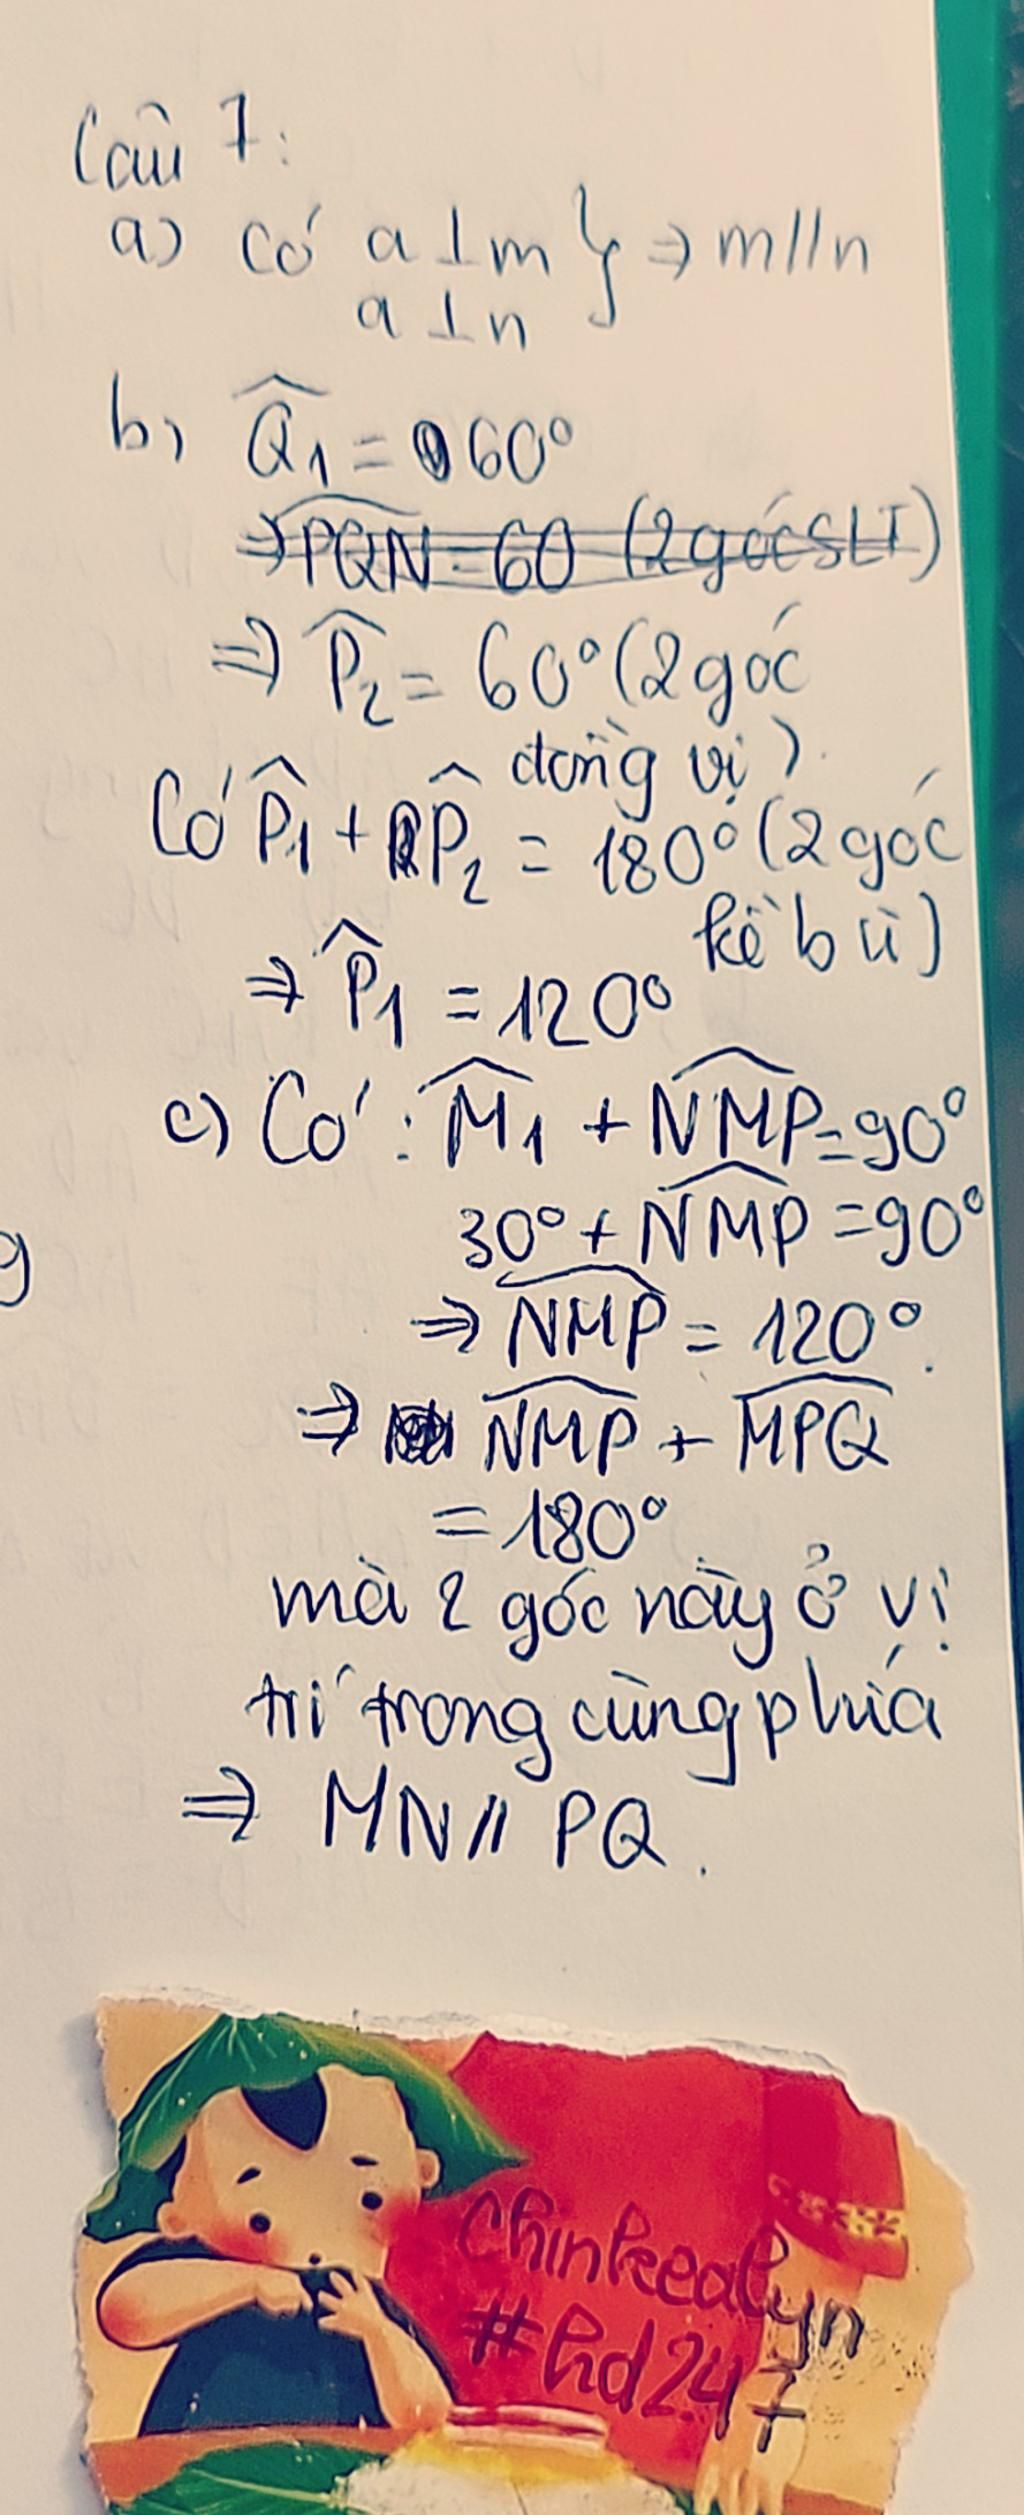 Câu 7:
a) Có a ⊥ m } ⇒ m // n
a ⊥ n
b) Q̂₁ = 60°
⇒ PQN = 60 (2 góc SLT)
⇒ P̂₂ = 60° (2 góc
đồng vị).
Có P̂₁ + P̂₂ = 180° (2 góc
kề bù)
⇒ P̂₁ = 120°
c) Có: M̂₁ + NMP = 90°
30° + NMP = 90°
g
⇒ NMP = 120°.
⇒ NMP + MPQ
= 180°
mà 2 góc này ở vị
trí trong cùng phía
⇒ MN // PQ.
Chinkealyn
#hd247